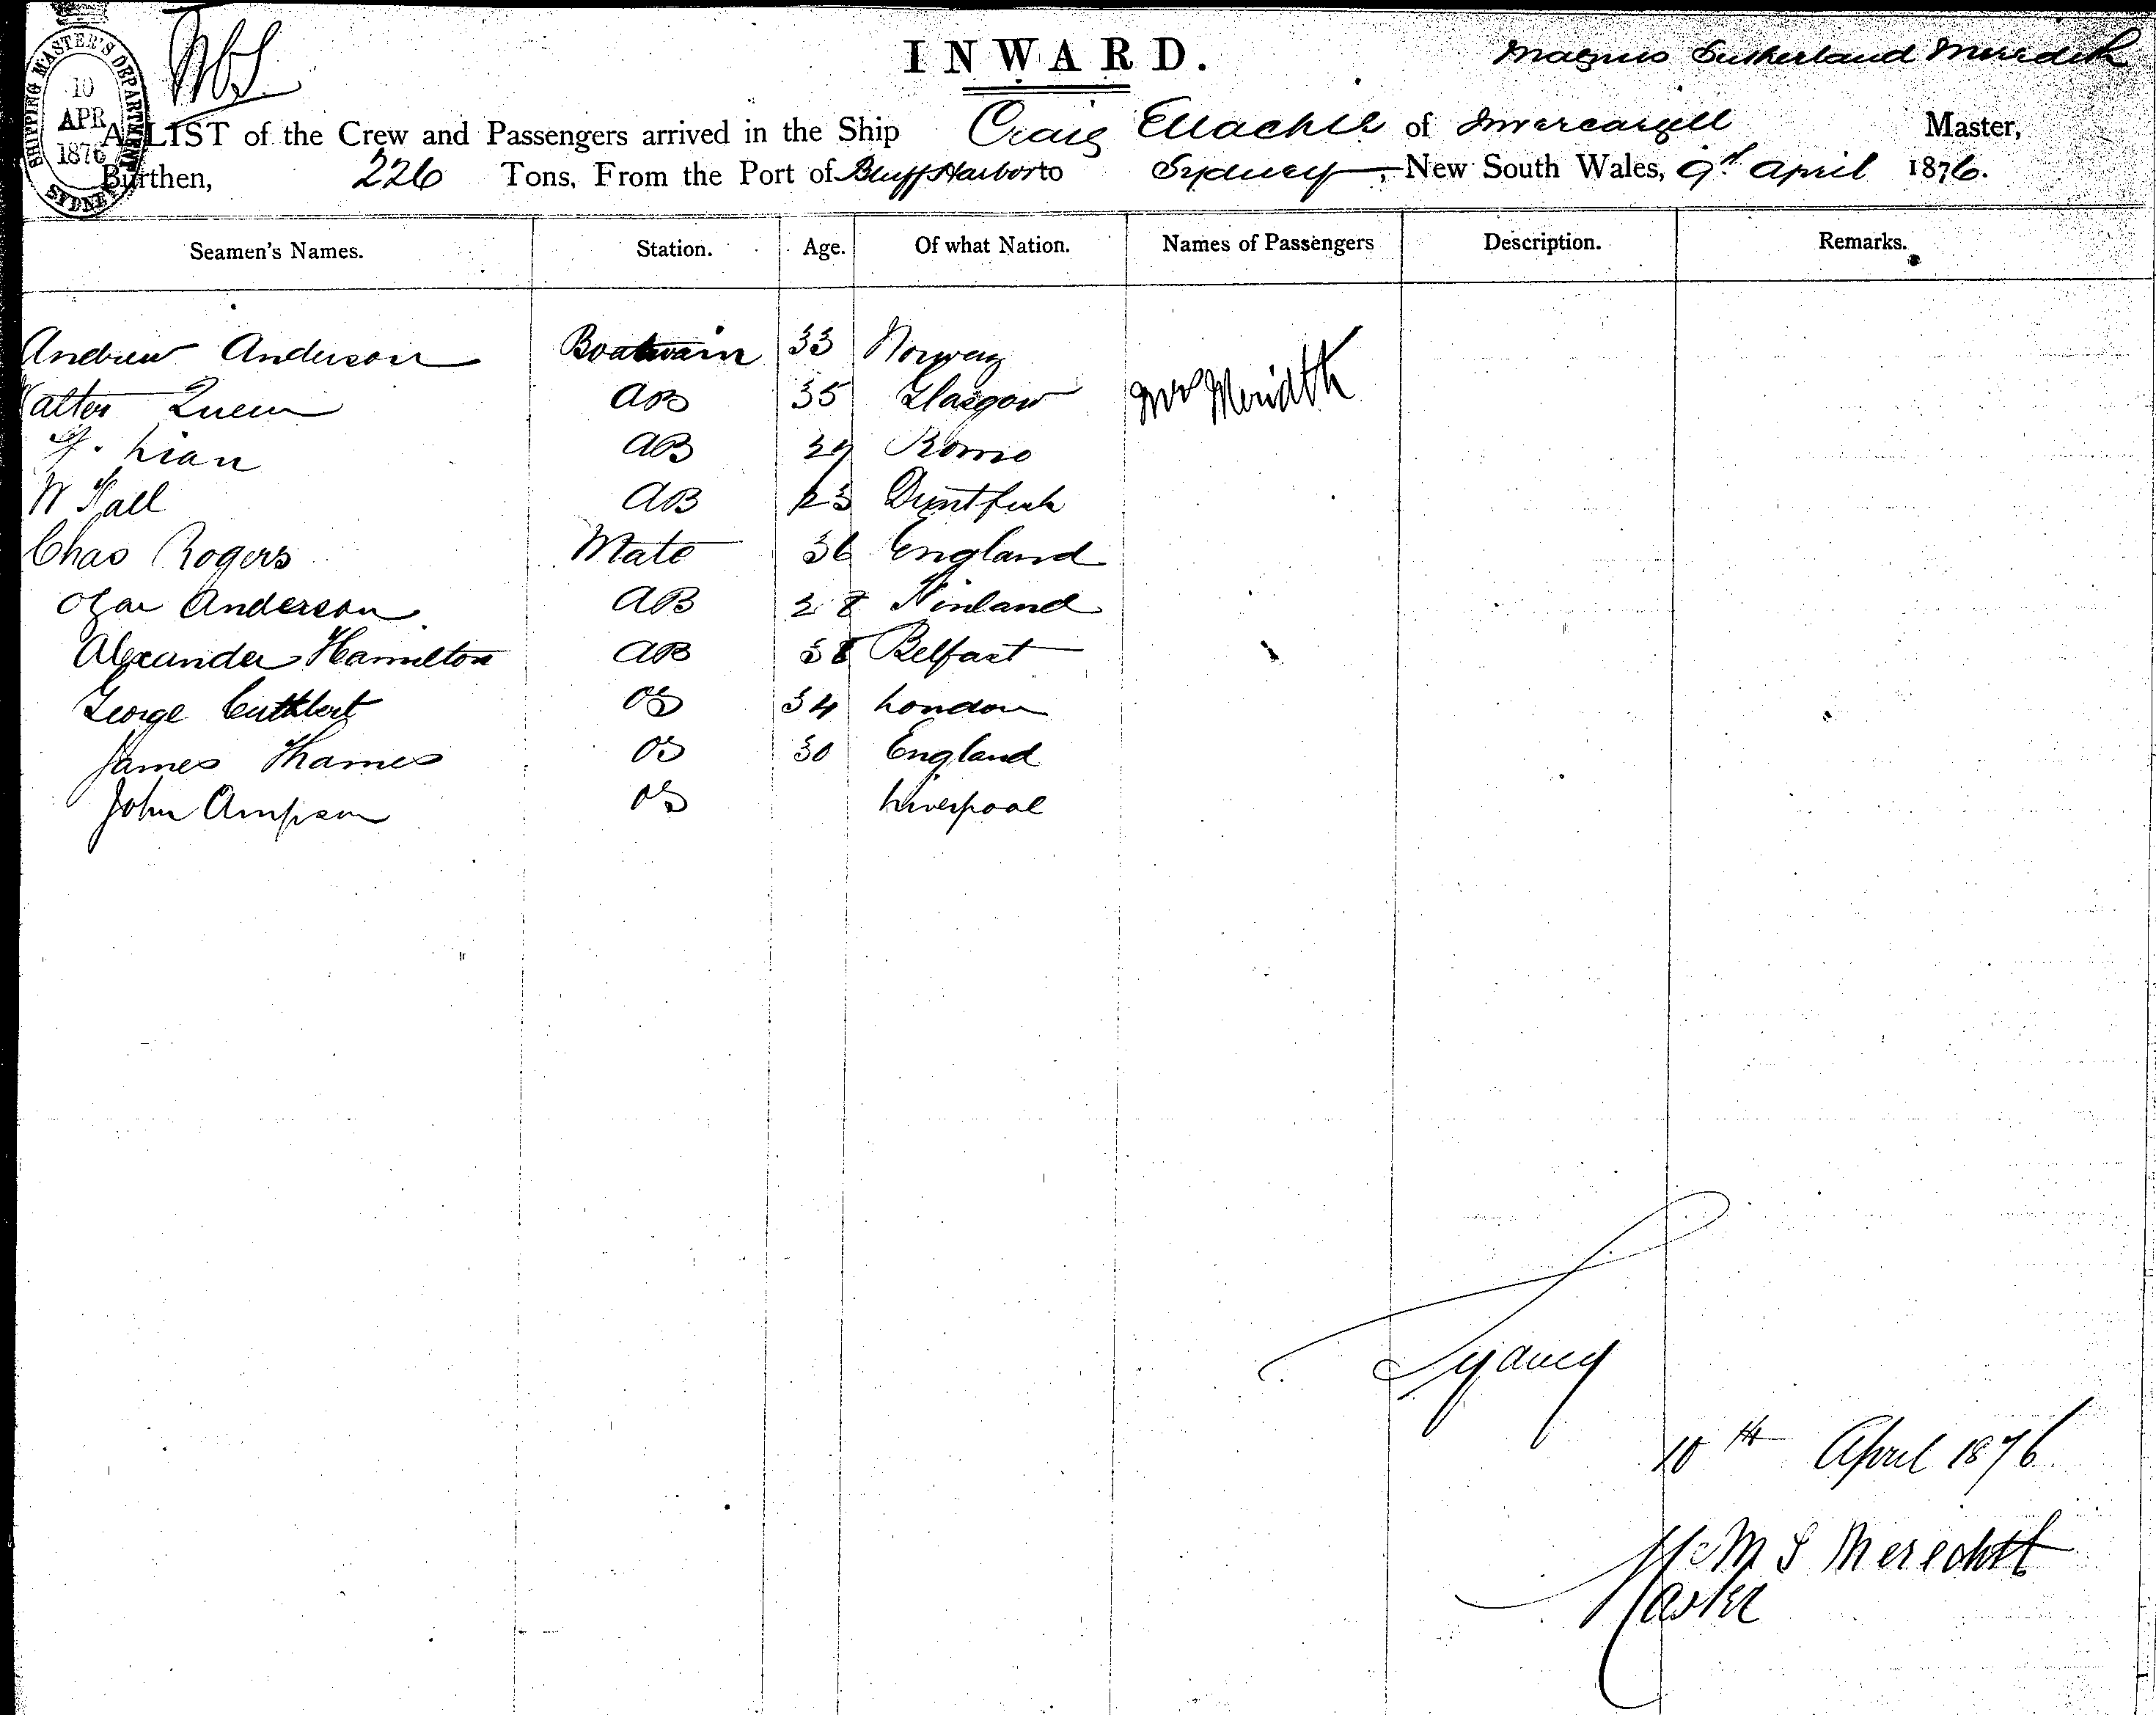 SHIPPING MASTER'S DEPARTMENT
10
APR
1876
SYDNEY
INWARD.
Magnus Sutherland Meredith
A LIST of the Crew and Passengers arrived in the Ship Craig Ellachie of Invercargill Master,
Burthen, 226 Tons, From the Port of Bluff Harbor to Sydney, New South Wales, 9th April 1876.
Seamen's Names. Station. Age. Of what Nation. Names of Passengers Description. Remarks.
Andrew Anderson Boatswain 33 Norway
alter AB 35 Glasgow Mrs Meridth
AB 29
W AB 23
Chas Rogers Mate 36 England
Anderson AB 28 Finland
Alexander Hamilton AB 38 Belfast
George Cuthbert OS 34 London
James Thames OS 30 England
John Ampson OS Liverpool
Sydney
10th April 1876
M S Meredith
Master